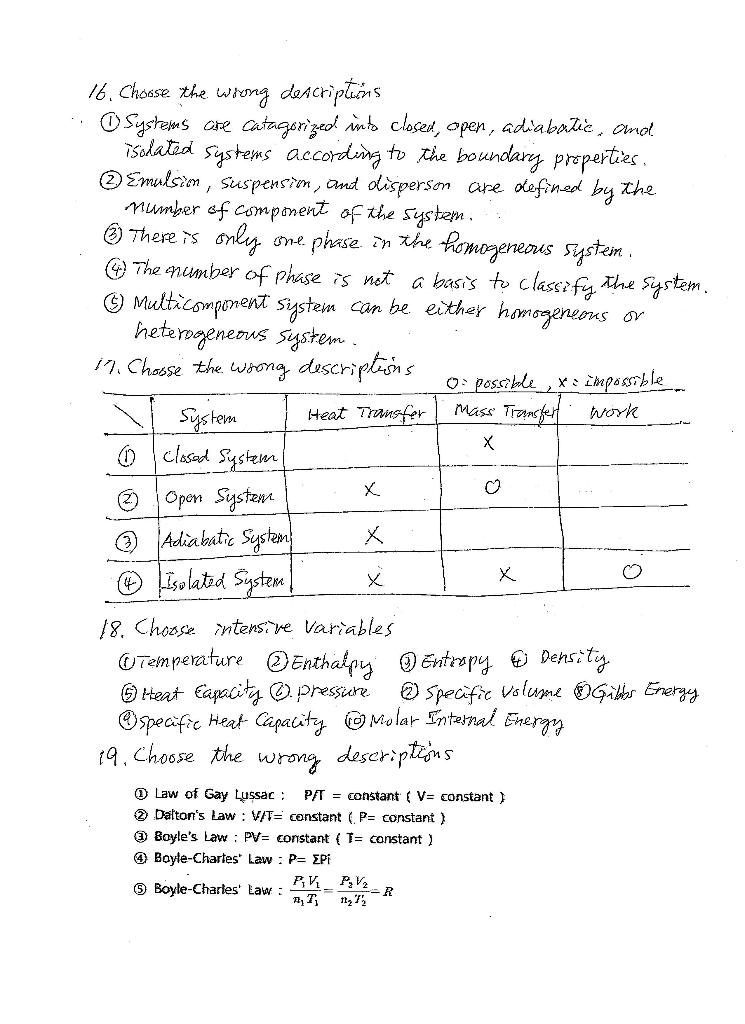 16. Choose the wrong descriptions
① Systems are catagorized into closed, open, adiabatic, and
isolated systems according to the boundary properties.
② Emulsion, suspension, and disperson are defined by the
number of component of the system.
③ There is only one phase in the homogeneous system.
④ The number of phase is not a basis to classify the system.
⑤ Multicomponent system can be either homogeneous or
heterogeneous system.
17. Choose the wrong descriptions
O = possible, x = impossible
System Heat Transfer Mass Transfer Work
① Closed System X
② Open System X O
③ Adiabatic System X
④ Isolated System X X O
18. Choose intensive variables
① Temperature ② Enthalpy ③ Entropy ④ Density
⑤ Heat Capacity ⑥ pressure ⑦ Specific Volume ⑧ Gibbs Energy
⑨ Specific Heat Capacity ⑩ Molar Internal Energy
19. Choose the wrong descriptions
① Law of Gay Lussac : P/T = constant ( V= constant )
② Dalton's Law : V/T= constant ( P= constant )
③ Boyle's Law : PV= constant ( T= constant )
④ Boyle-Charles' Law : P= ΣPi
⑤ Boyle-Charles' Law : P₁V₁/n₁T₁ = P₂V₂/n₂T₂ = R